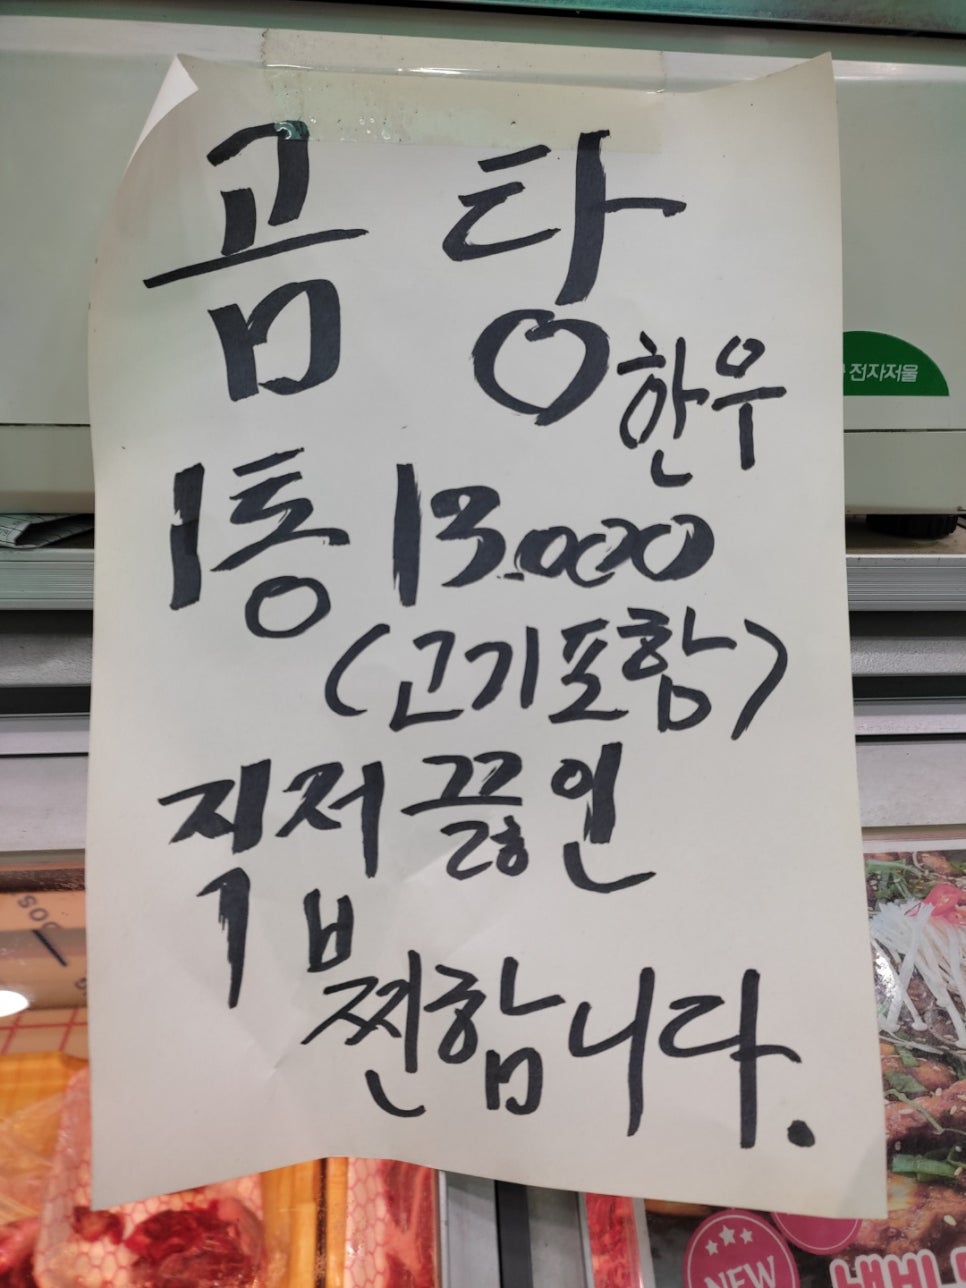 곰탕
한우
전자저울
1통 13.000
(고기포함)
직접 끓인
찐합니다.
NEW